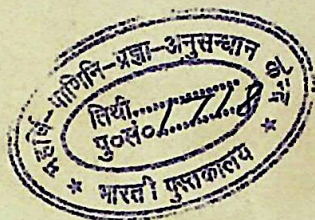 महर्षि-पाणिनि-प्रज्ञा-अनुसन्धान केन्द्र
तिथी..................
पु०सं०.1718
* भारती पुस्तकालय *